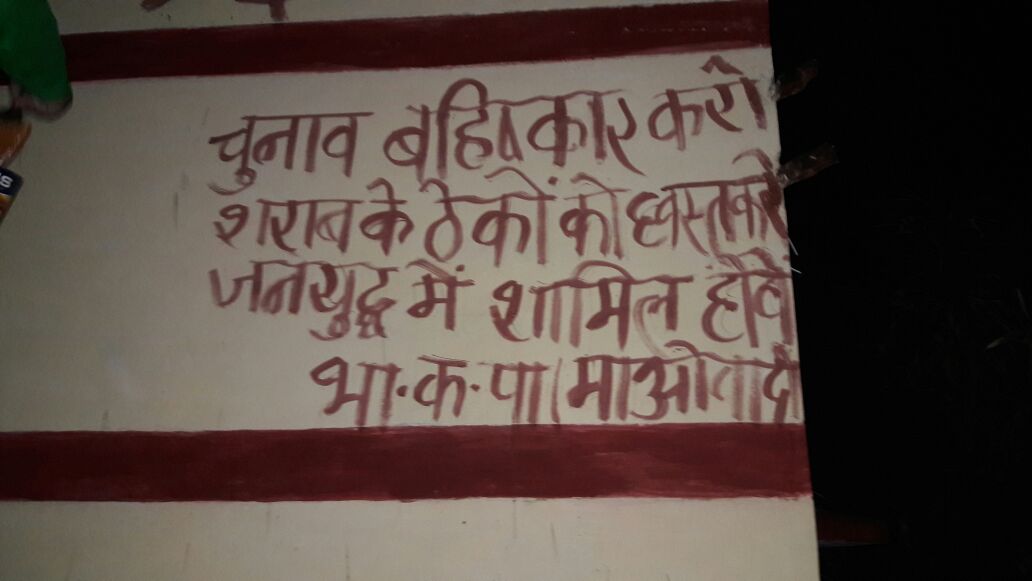 चुनाव बहिष्कार करो
शराब के ठेकों को ध्वस्त करे
जनयुद्ध में शामिल होवें
भा.क.पा (माओवादी